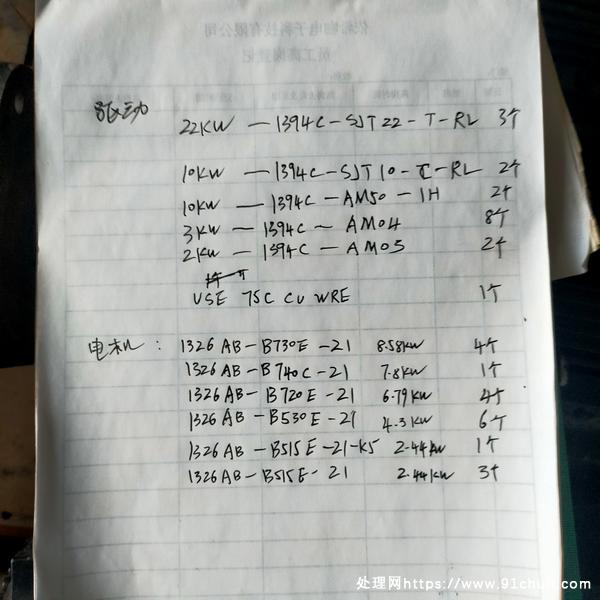 驱动
22KW — 1394C-SJT22-T-RL 3个
10KW — 1394C-SJT10-T-RL 2个
10KW — 1394C-AM50-IH 2个
3KW — 1394C-AM04 8个
2KW — 1394C-AM05 2个
USE 75C CU WRE 1个
电机: 1326AB-B730E-21 8.58KW 4个
1326AB-B740C-21 7.8KW 1个
1326AB-B720E-21 6.79KW 4个
1326AB-B530E-21 4.3KW 6个
1326AB-B515E-21-K5 2.44KW 1个
1326AB-B515E-21 2.44KW 3个
处理网https://www.91chuli.com